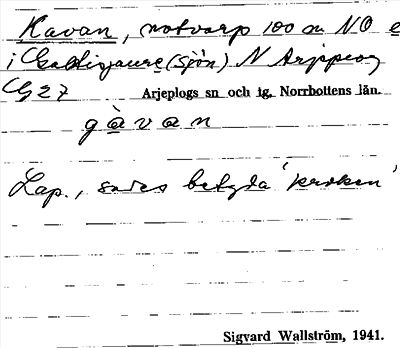 Kavan, notvarp 100 m NO
i Galtisjaure (Sjön) N Arjeplog
G 27 Arjeplogs sn och tg, Norrbottens län.
gàvan
Lap., sades betyda 'kroken'
Sigvard Wallström, 1941.